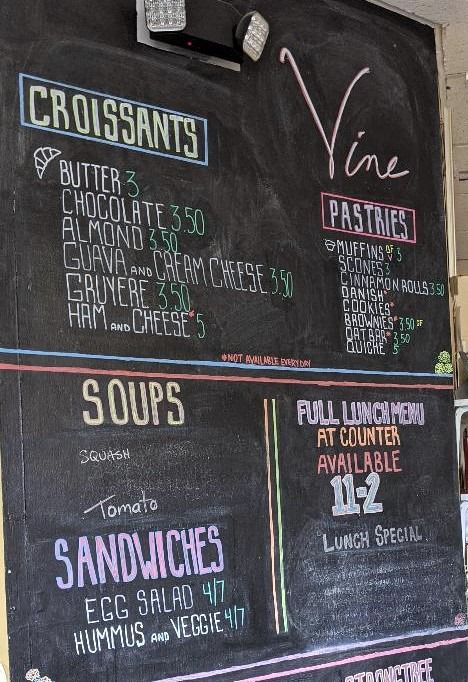 Vine
CROISSANTS
BUTTER 3
CHOCOLATE 3.50
ALMOND 3.50
GUAVA AND CREAM CHEESE 3.50
GRUYERE 3.50
HAM AND CHEESE* 5
PASTRIES
MUFFINS 3
SCONES 3
CINNAMON ROLLS 3.50
DANISH
COOKIES*
BROWNIES* 3.50 GF
OAT BAR* 3.50
QUICHE 5
*NOT AVAILABLE EVERYDAY
SOUPS
SQUASH
Tomato
SANDWICHES
EGG SALAD 4/7
HUMMUS AND VEGGIE 4/7
FULL LUNCH MENU
AT COUNTER
AVAILABLE
11-2
LUNCH SPECIAL